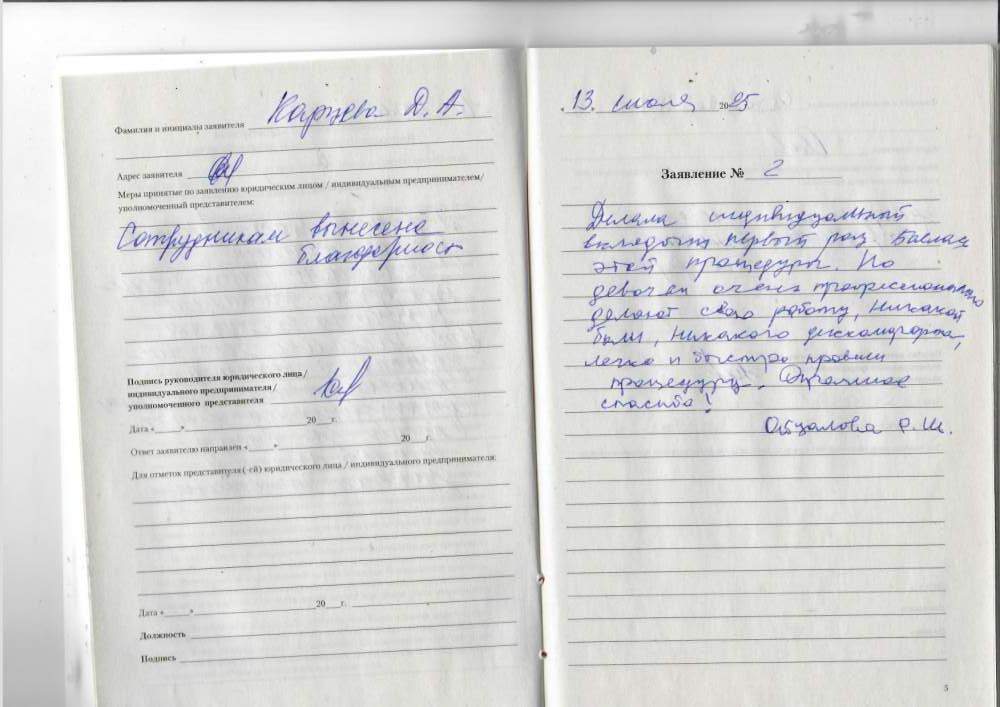 Фамилия и инициалы заявителя Каржева Д. А.
Адрес заявителя
Меры принятые по заявлению юридическим лицом / индивидуальным предпринимателем/
уполномоченный представителем:
Сотрудникам вынесена
благодарност
Подпись руководителя юридического лица/
индивидуального предпринимателя/
уполномоченного представителя
Дата «____»____20__г.
Ответ заявителю направлен «____»____20__г.
Для отметок представителя (-ей) юридического лица / индивидуального предпринимателя:
Дата «____»____20__г.
Должность
Подпись
13 июля 2025
Заявление № 2
Делала индивидуальный
вкладыши первый раз. Боялась
этой процедуры. Но
девочки очень профессионально
делают свою работу, никакой
боли, никакого дискомфорта,
легко и быстро провели
процедуру. Огромное
спасибо!
Р. Ш.
5